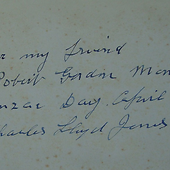 my Friend
Robert Gordon Men
nzac Day. April
harles Lloyd Jones